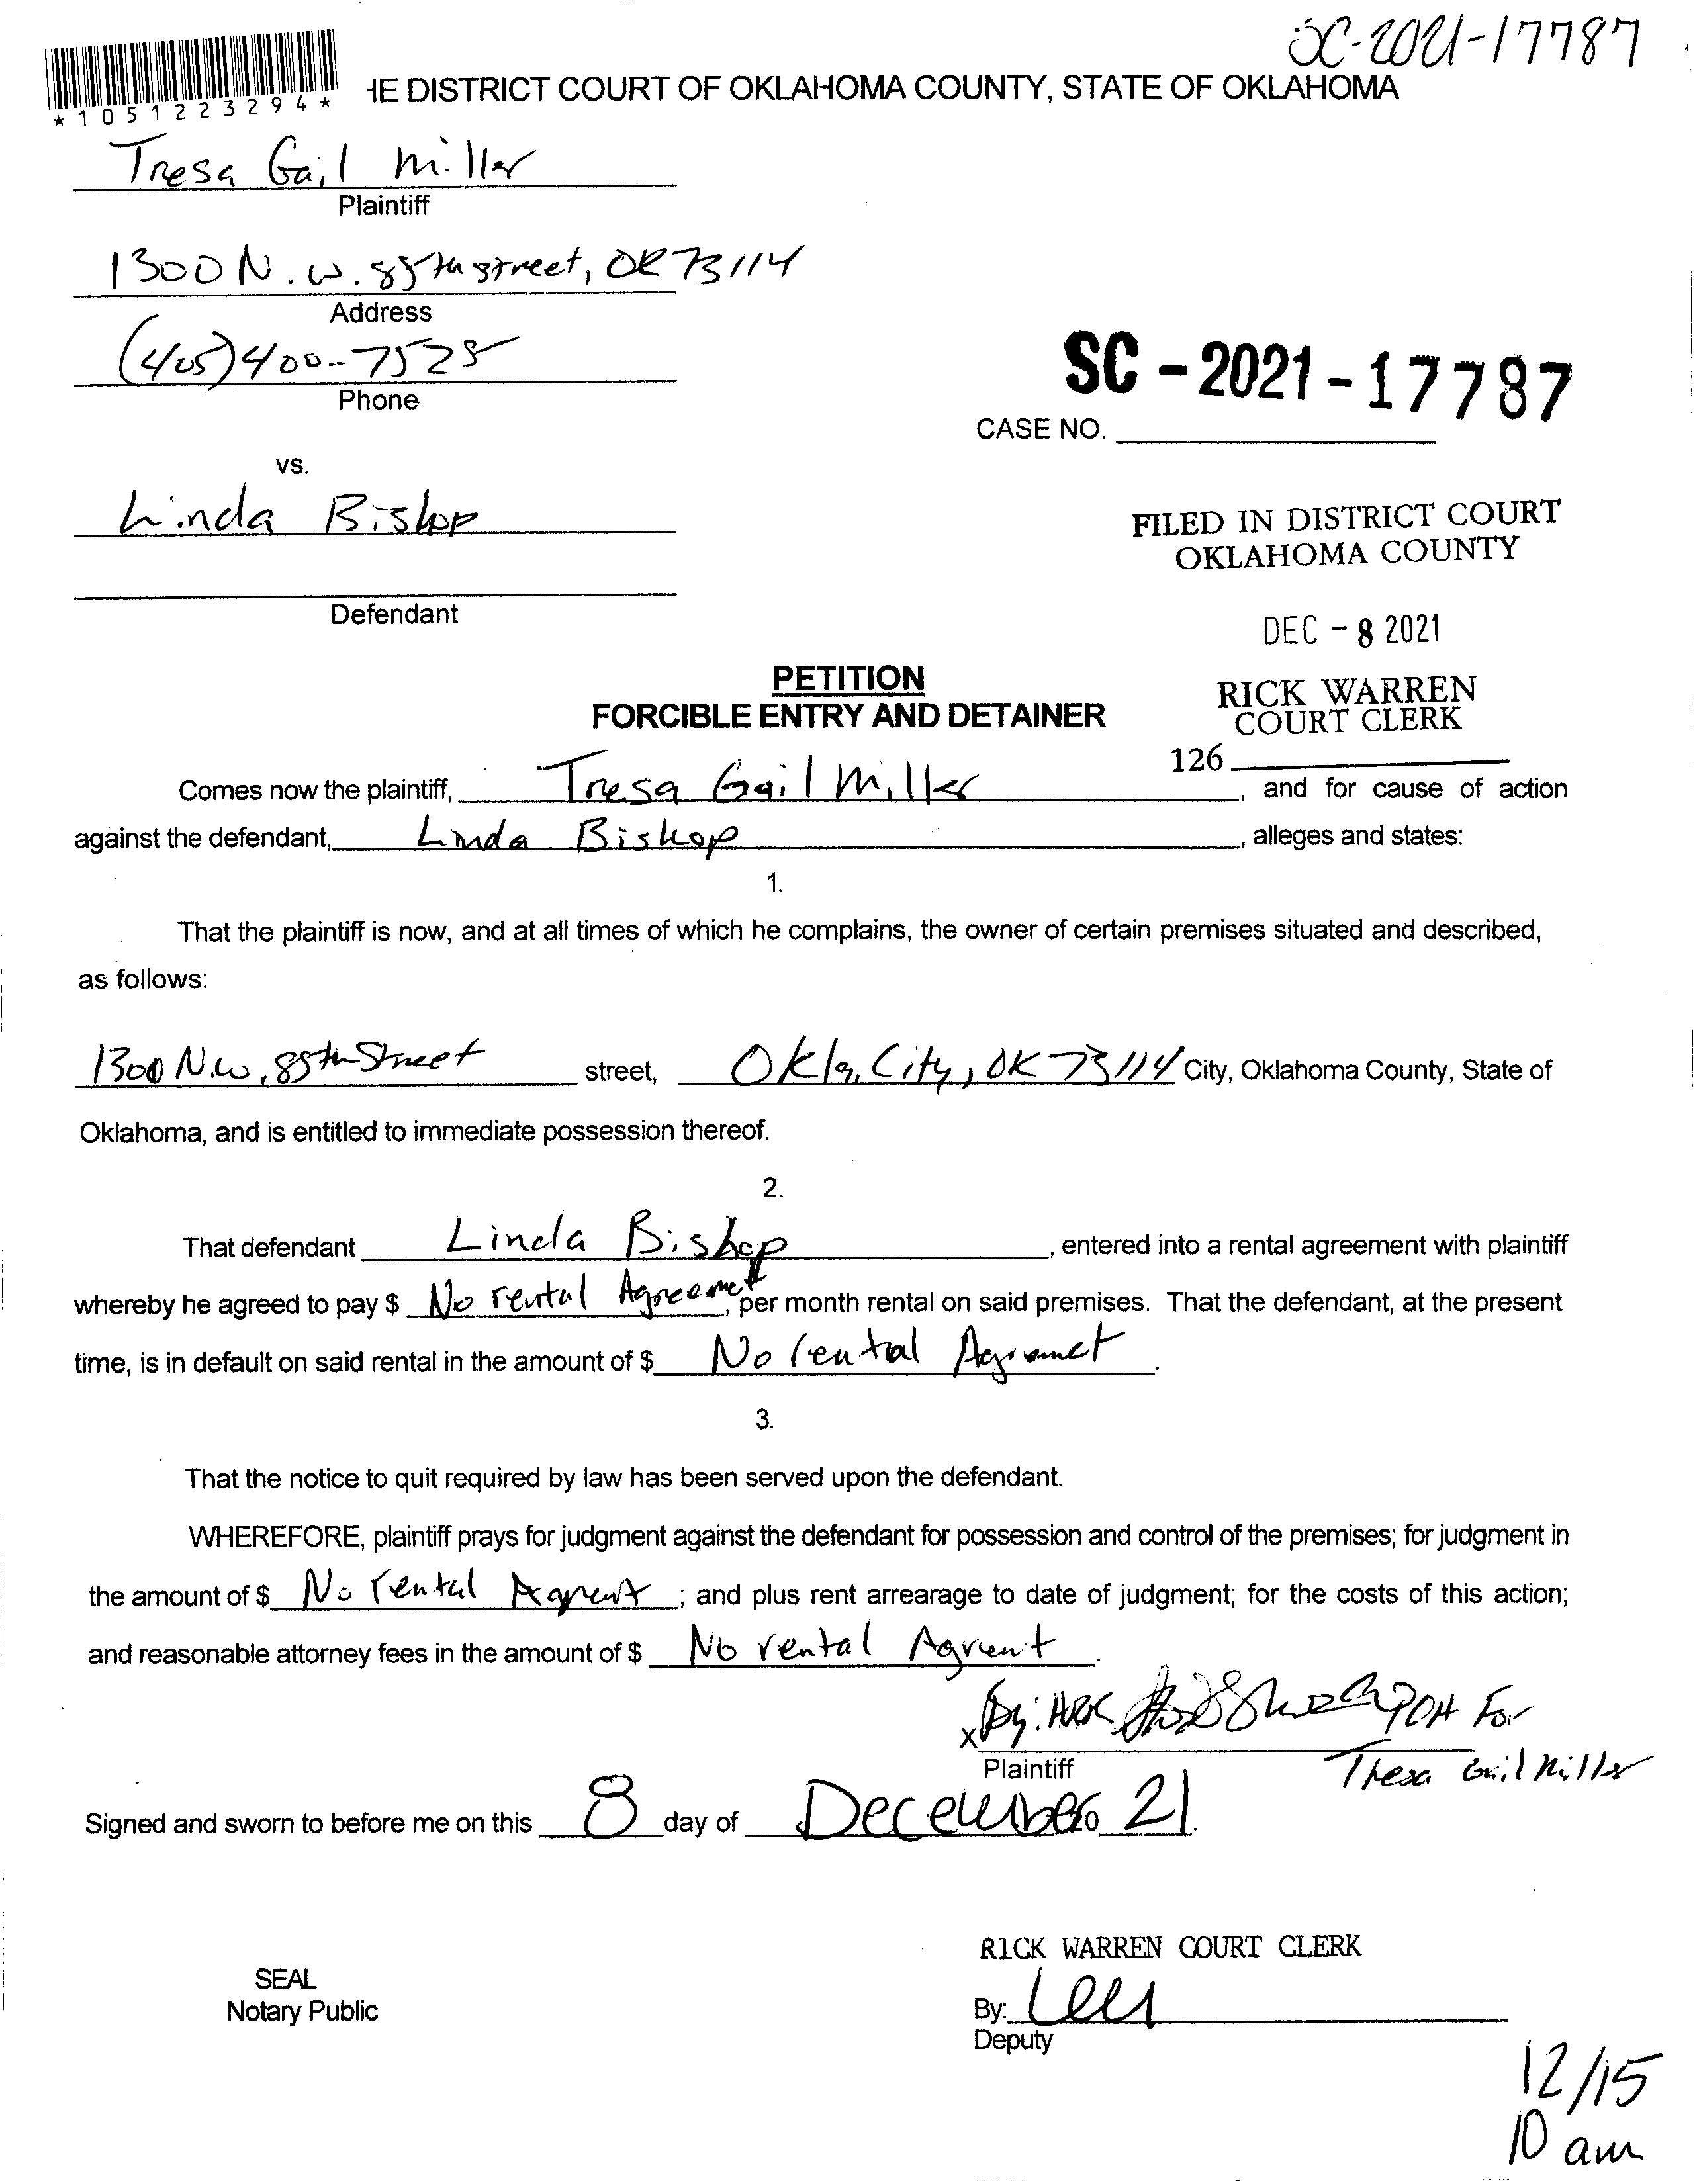 SC-2021-17787
*1051223294*
HE DISTRICT COURT OF OKLAHOMA COUNTY, STATE OF OKLAHOMA
Tresa Gail Miller
Plaintiff
1300 N.W. 85th street, OK 73114
Address
(405) 400-7528
Phone
SC-2021-17787
CASE NO.
vs.
Linda Bishop
FILED IN DISTRICT COURT
OKLAHOMA COUNTY
Defendant
DEC -8 2021
PETITION
FORCIBLE ENTRY AND DETAINER
RICK WARREN
COURT CLERK
126
Comes now the plaintiff, Tresa Gail Miller, and for cause of action
against the defendant, Linda Bishop, alleges and states:
1.
That the plaintiff is now, and at all times of which he complains, the owner of certain premises situated and described,
as follows:
1300 N.W. 85th Street street, Okla. City, OK 73114 City, Oklahoma County, State of
Oklahoma, and is entitled to immediate possession thereof.
2.
That defendant Linda Bishop, entered into a rental agreement with plaintiff
whereby he agreed to pay $ No rental Agreemet, per month rental on said premises. That the defendant, at the present
time, is in default on said rental in the amount of $ No rental Agremet.
3.
That the notice to quit required by law has been served upon the defendant.
WHEREFORE, plaintiff prays for judgment against the defendant for possession and control of the premises; for judgment in
the amount of $ No rental Agrent; and plus rent arrearage to date of judgment; for the costs of this action;
and reasonable attorney fees in the amount of $ No rental Agrent.
x By: POA For
Plaintiff Tresa Gail Miller
Signed and sworn to before me on this 8 day of December 21.
RICK WARREN COURT CLERK
SEAL
Notary Public
By: Lee
Deputy
12/15
10 am